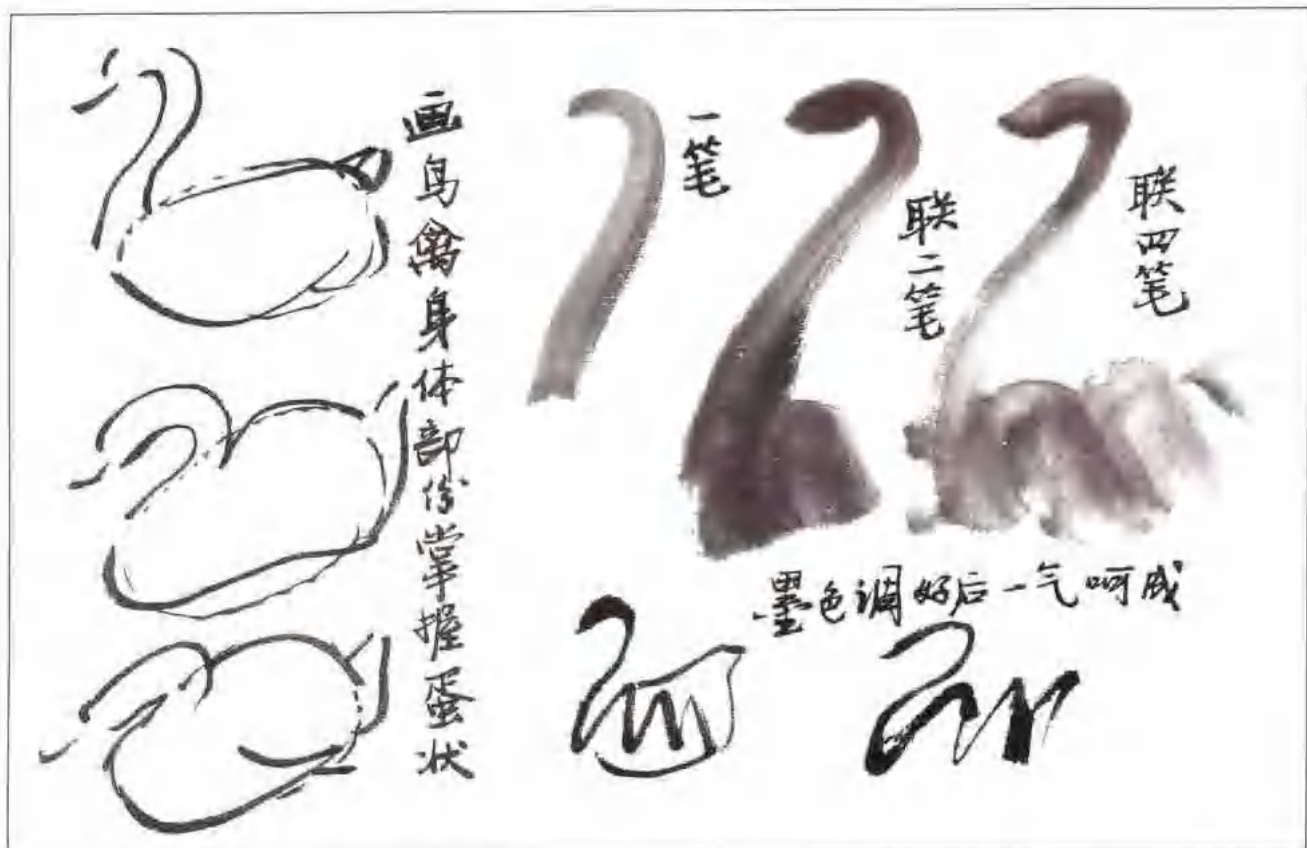 画鸟禽身体部份掌握蛋状
一笔
联二笔
联四笔
墨色调好后一气呵成